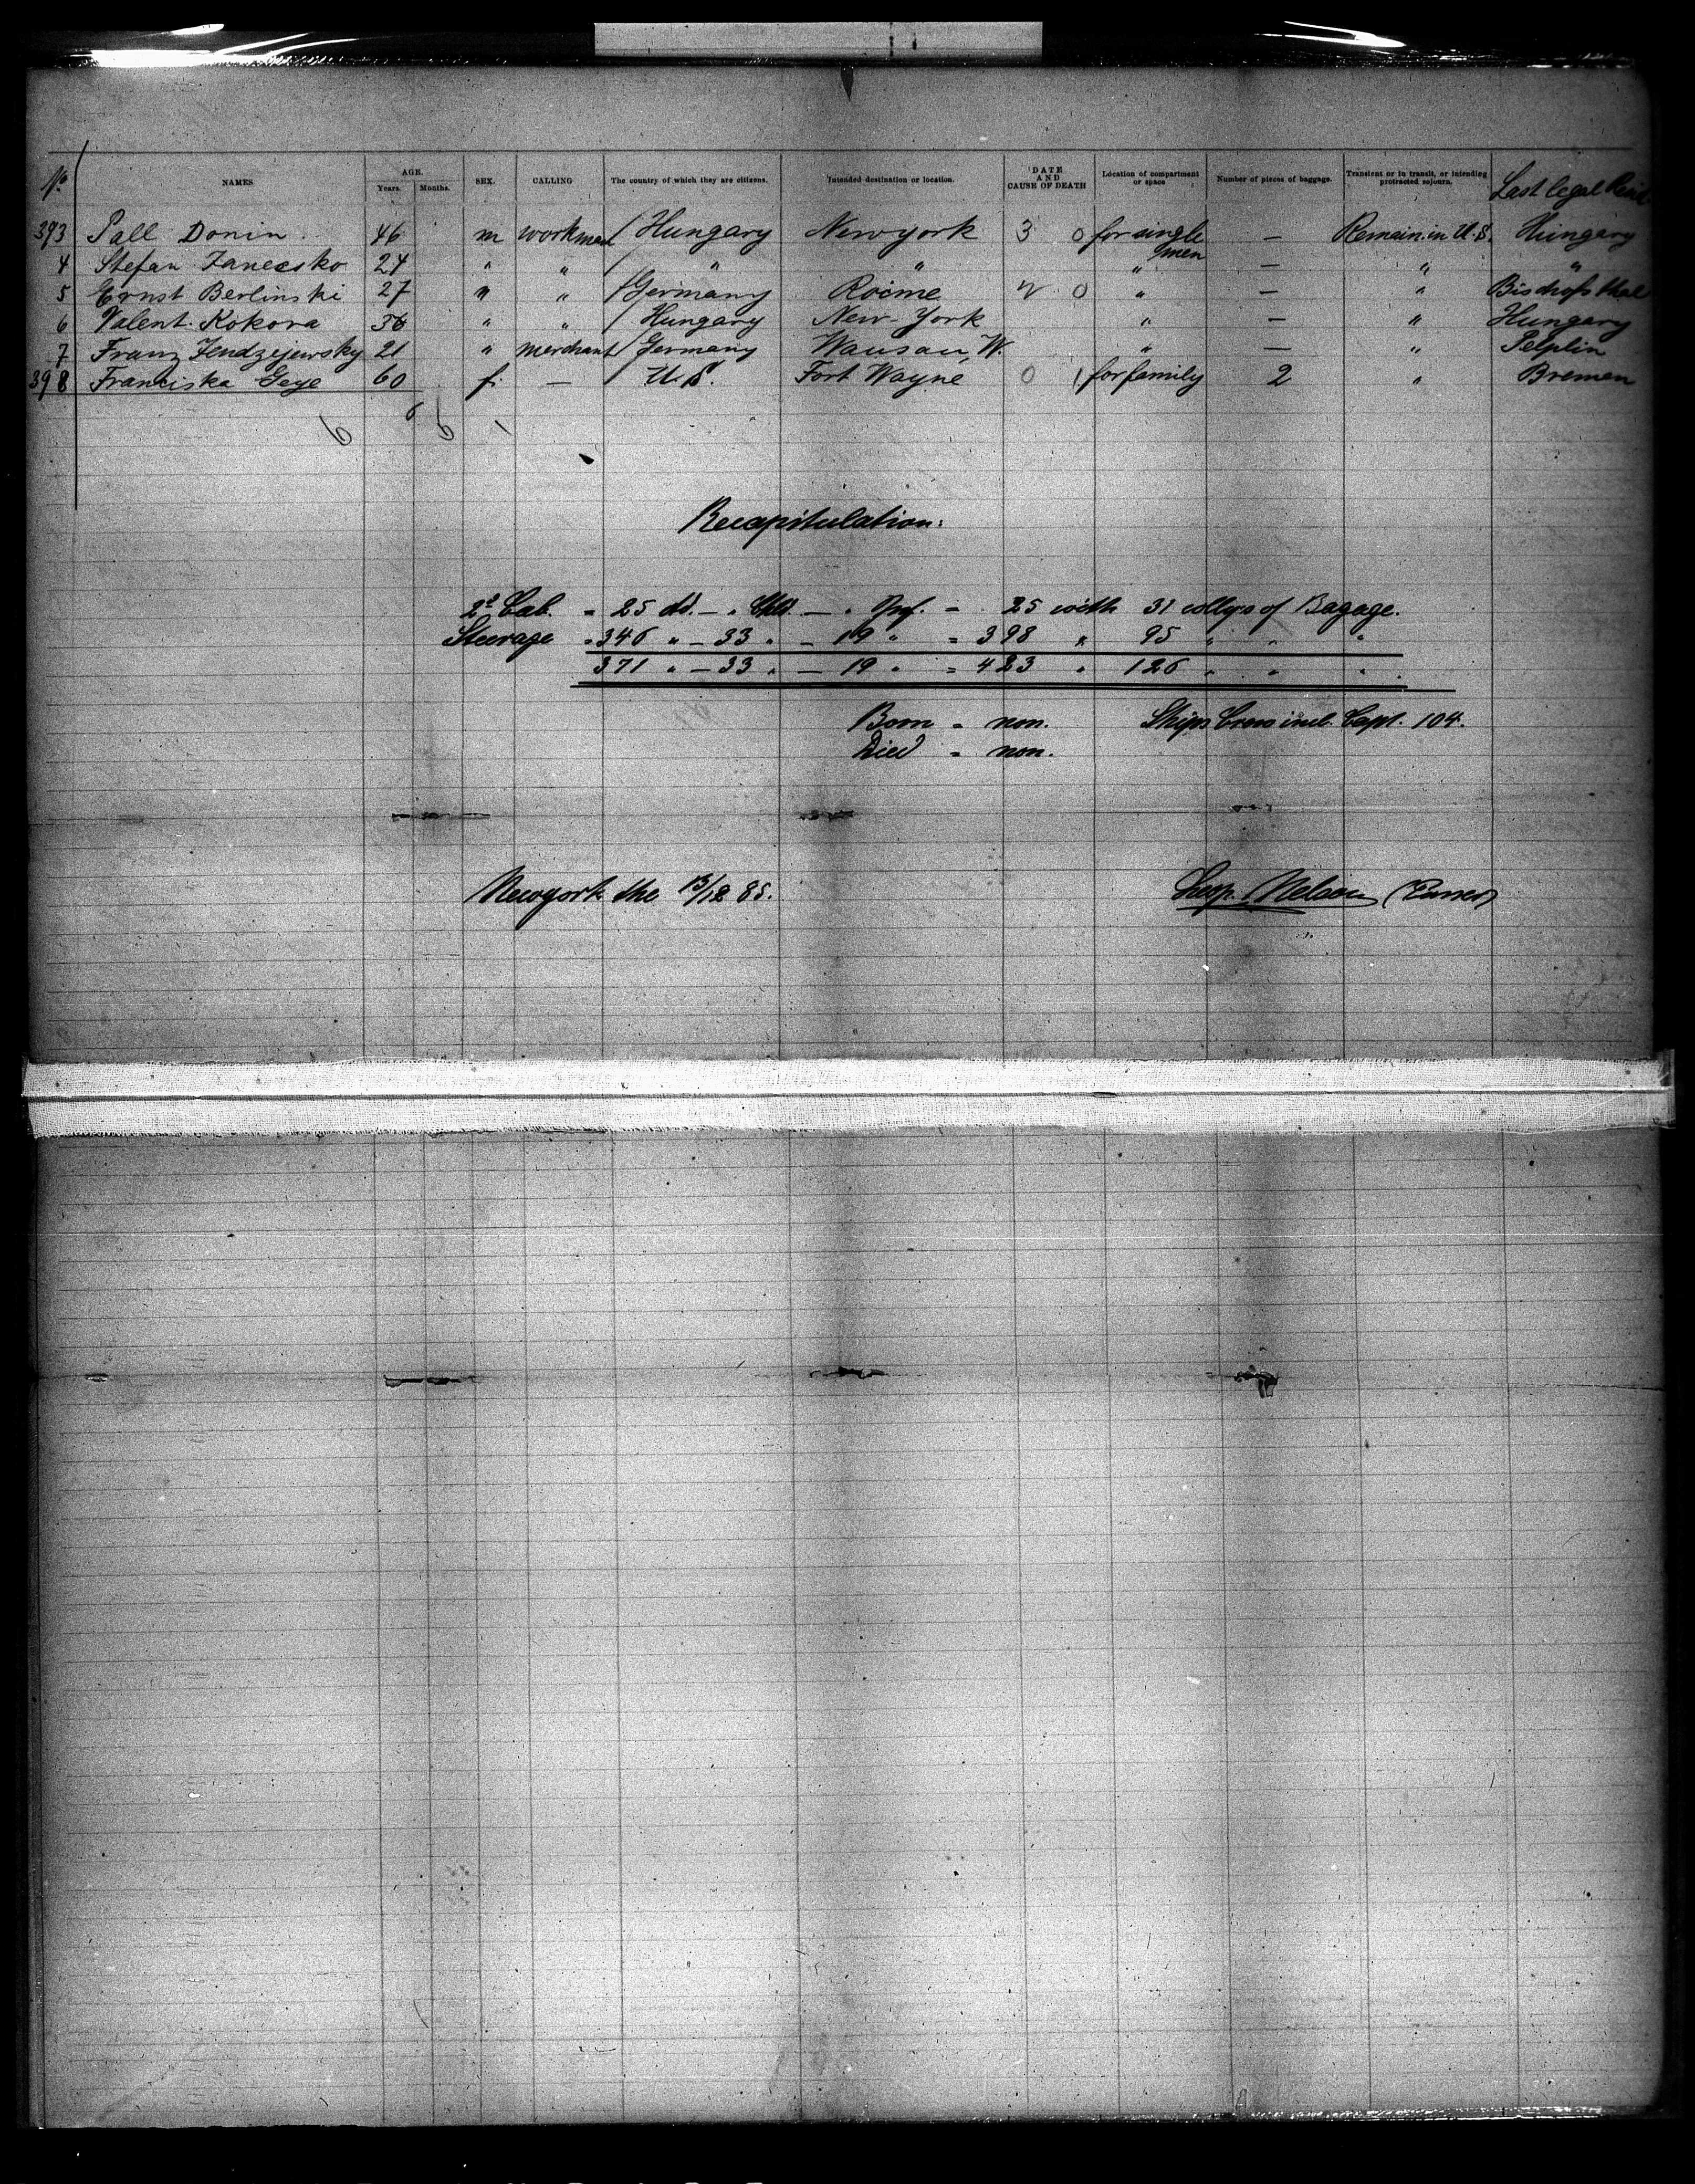 No NAMES AGE. Years. Months. SEX. CALLING The country of which they are citizens. Intended destination or location. DATE AND CAUSE OF DEATH Location of compartment or space Number of pieces of baggage. Transient or in transit, or intending protracted sojourn. Last legal Resid
393 Pall Donin 46 m workman Hungary Newyork 3 0 for single men — Remain in U.S. Hungary
4 Stefan 24 " " " " " — " "
5 Ernst Berlinski 27 " " Germany Roime 2 0 " — " Bischofsthal
6 Valent. Kokora 36 " " Hungary New-York " — " Hungary
7 Franz Jendzejewsky 21 " merchant Germany Wausau, W. " — " Pelplin
398 Franciska Geye 60 f. — U.S. Fort Wayne 0 1 for family 2 " Bremen
6 6 6 1
Recapitulation:
2d Cab. = 25 ad. — " Chld. — " Inf. = 25 with 31 collys of Bagage.
Steerage = 346 " — 33 " — 19 " = 398 " 95 " " "
371 " — 33 " — 19 " = 423 " 126 " " "
Born = non. Ships Crew incl. Capt. 104.
Died = non.
Newyork the 13/12 85.
Nelsen (Purser)